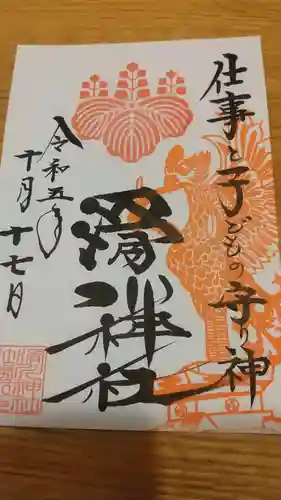 仕事と子どもの守り神
神社
令和五年
十月十七日